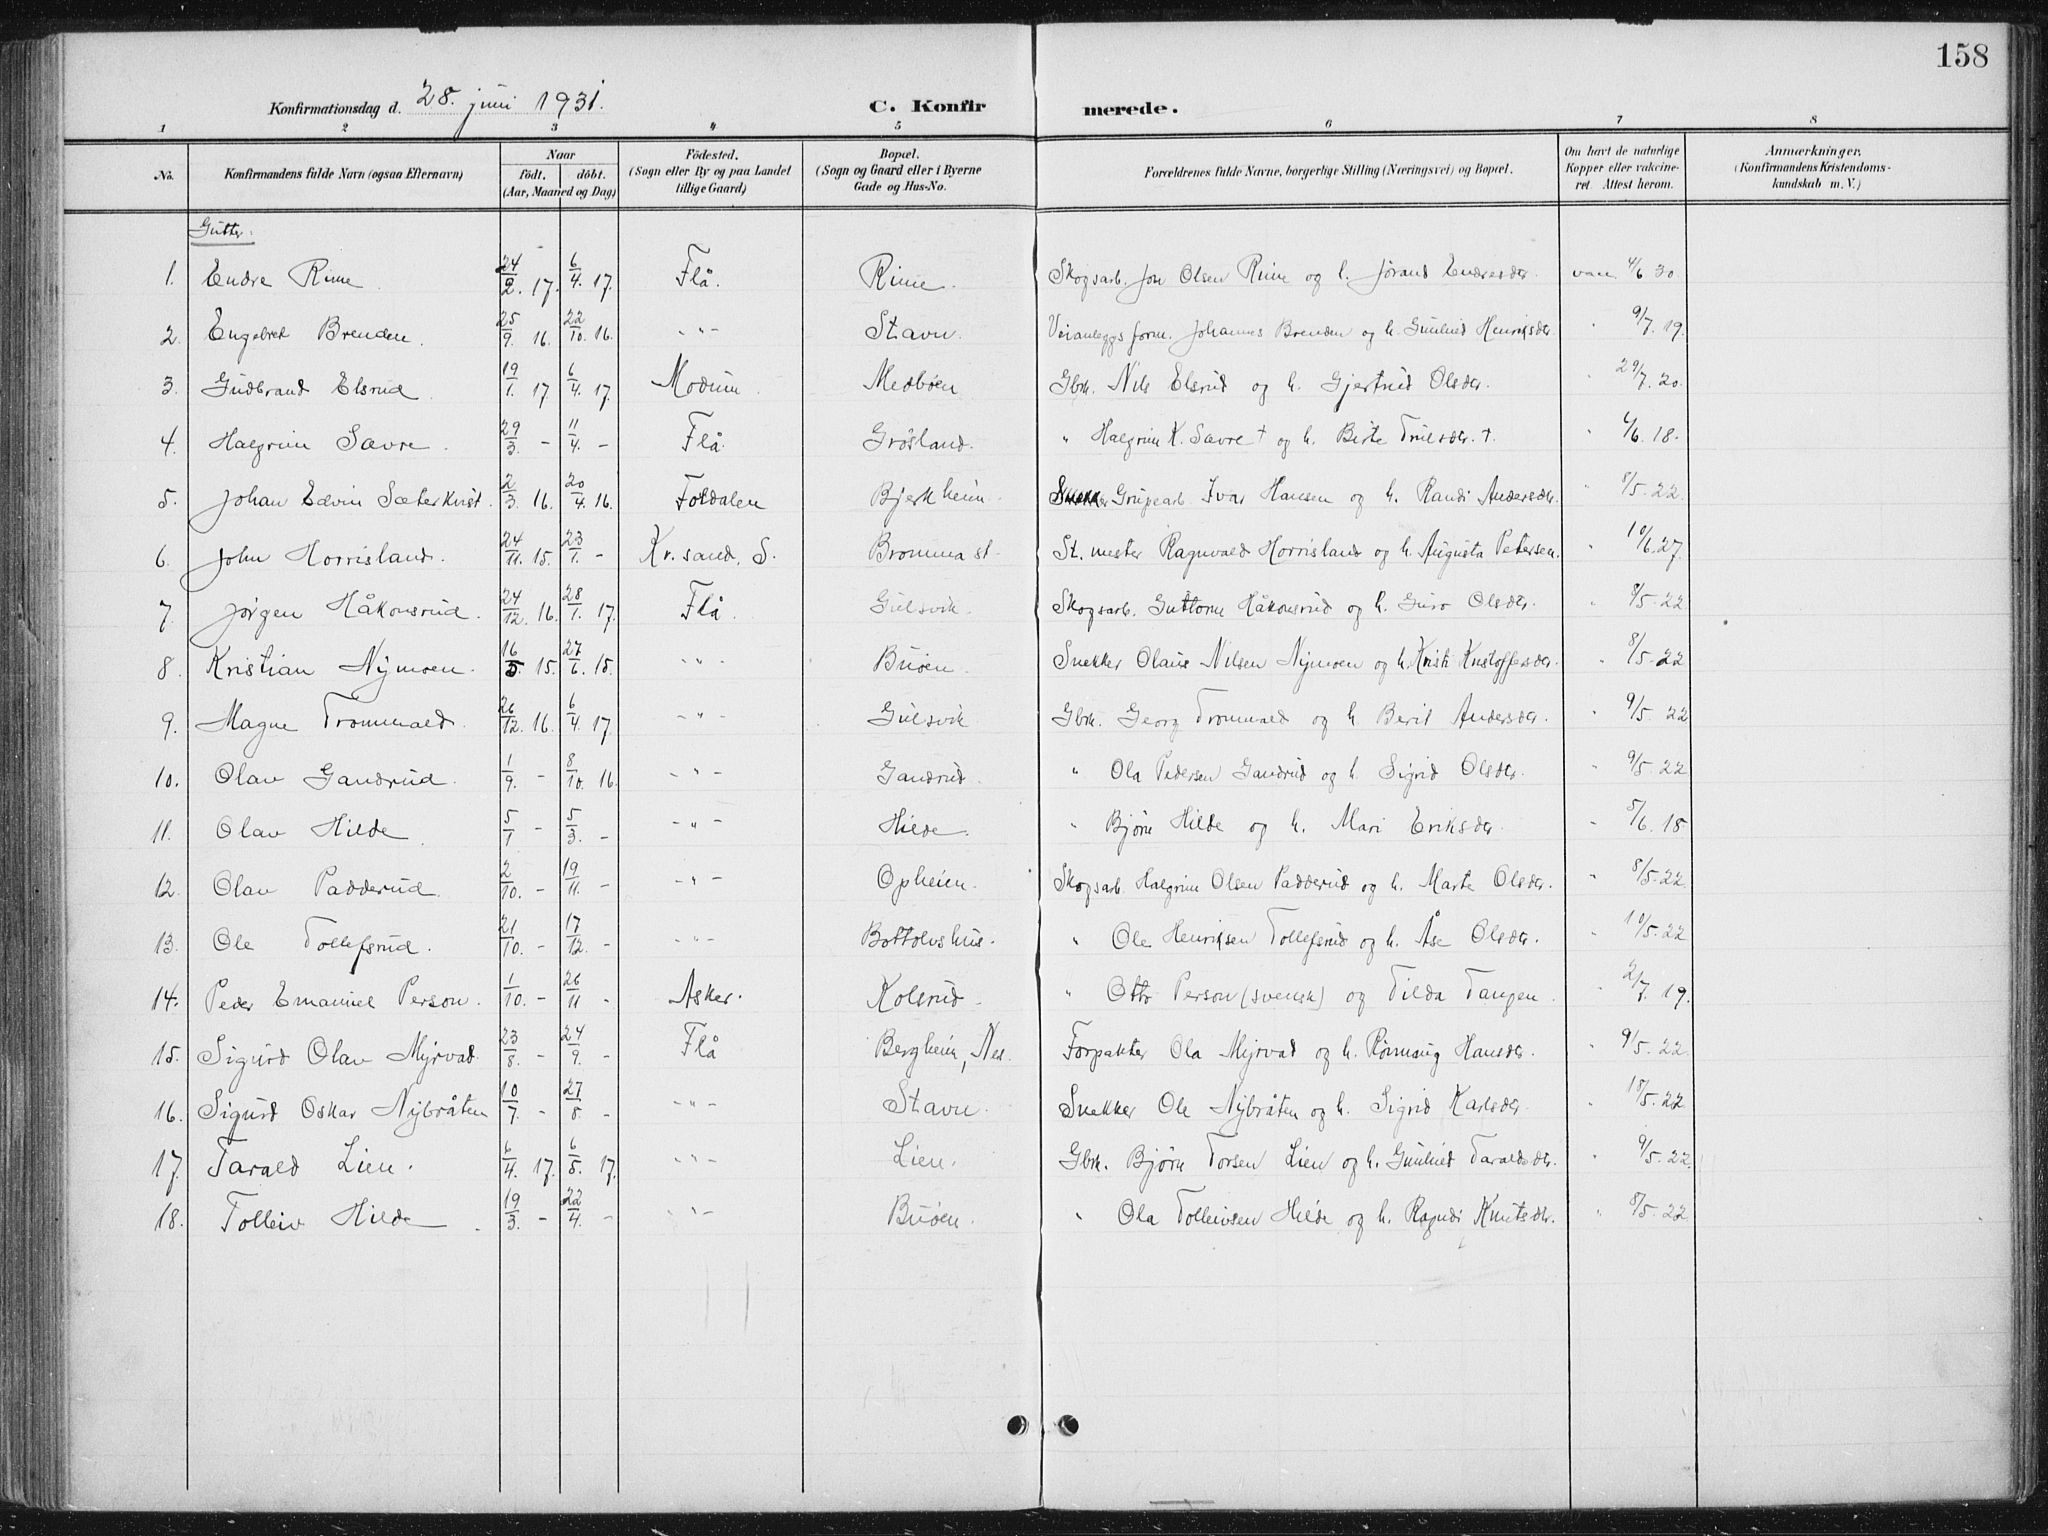 158
Konfirmationsdag d. 28. juni 1931. C. Konfirmerede.
1 2 3 4 5 6 7 8
No. Konfirmandens fulde Navn (ogsaa Efternavn) Naar født. døbt. (Aar, Maaned og Dag) Fødested. (Sogn eller By og paa Landet tillige Gaard) Bopæl. (Sogn og Gaard eller i Byerne Gade og Hus-No. Forældrenes fulde Navne, borgerlige Stilling (Næringsvei) og Bopæl. Om havt de naturlige Kopper eller vakcineret. Attest herom. Anmærkninger. (Konfirmandens Kristendomskundskab m. V.)
Gutter.
1. Endre Rime 24/2. 17. 6/4. 17. Flå. Rime. Skogsarb. Jon Olsen Rime og h. Jørand Endresdtr. vacc. 4/6 30.
2. Engebret Brenden. 25/9. 16. 22/10. 16. -"- Stavn. Veianleggs form. Johannes Brenden og h. Gunhild Henriksdtr. " 9/7. 19.
3. Gudbrand Elsrud 19/1. 17. 6/4. 17. Modum. Medbøen Gbr. Nils Elsrud og h. Gjertrud Olsdtr. " 29/7. 20.
4. Halgrim Sævre. 29/3. - 11/4. - Flå. Grøsland. " Halgrim K. Sævre † og h. Birte Trulsdtr. †. " 6/6. 18.
5. Johan Edvin Sæterkvist. 2/3. 16. 20/4. 16. Foldalen Bjerkheim. Grubearb. Ivar Hansen og h. Randi Andersdtr. " 8/5. 22.
6. John Horrisland. 24/11. 15. 23/1. - Kr.sand. S. Bromma st. St.mester Ragnvald Horrisland og h. Augusta Petersen. " 10/6. 27.
7. Jørgen Håkonsrud. 24/12. 16. 28/1. 17. Flå. Gulsvik. Skogsarb. Guttorm Håkonsrud og h. Guro Olsdtr. " 9/5. 22
8. Kristian Nymoen. 16/5. 15. 27/6. 15. -"- Buøen. Snekker Olaus Nilsen Nymoen og h. Kristi Kristoffersdtr. " 8/5. 22
9. Magne Trommald. 26/12. 16. 6/4. 17. -"- Gulsvik Gbr. Georg Trommald og h. Berit Andersdtr. " 9/5. 22
10. Olav Gandrud. 1/9. - 8/10. 16. -"- Gandrud. " Ola Pedersen Gandrud og h. Sigrid Olsdtr. " 9/5. 22
11. Olav Hilde. 5/1 - 5/3. - -"- Hilde. " Bjørn Hilde og h. Mari Eriksdtr. " 5/6. 18
12. Olav Padderud. 2/10. - 19/11. - -"- Opheim. Skogsarb. Halgrim Olsen Padderud og h. Marte Olsdtr. " 8/5. 22.
13. Ole Tollefsrud. 21/10. - 17/12. - -"- Bottolvshus. " Ole Henriksen Tollefsrud og h. Åse Olsdtr. " 10/5. 22
14. Peder Emanuel Person. 1/10. - 26/11 - Asker. Kolsrud. " Otto Person (svensk) og Tilda Tangen. " 2/7. 19.
15. Sigurd Olav Myrvad. 23/8. - 24/9. - Flå Bergheim, Nes. Forpakter Ola Myrvad og h. Rønnaug Hansdtr. " 9/5. 22.
16. Sigurd Oskar Nybråten 10/7. - 27/8. - -"- Stavn. Snekker Ole Nybråten og h. Sigrid Karlsdtr. " 18/5. 22
17. Tarald Lien. 6/4. 17. 6/5. 17. -"- Lien. Gbr. Bjørn Torsen Lien og h. Gunhild Taraldsdtr. " 9/5. 22.
18. Tolleiv Hilde. 19/3. - 22/4. - -"- Buøen. " Ola Tolleivsen Hilde og h. Ragndi Knutsdtr. " 8/5. 22